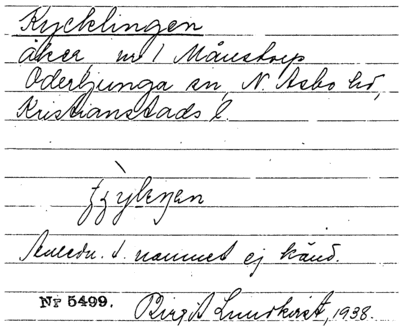 Kycklingen
åker, nr 1 Månstorp
Oderljunga sn, N. Åsbo hd,
Kristianstads l.
Anledn. t. namnet ej känd.
Nr 5499. Birgit Lundkvist, 1938.